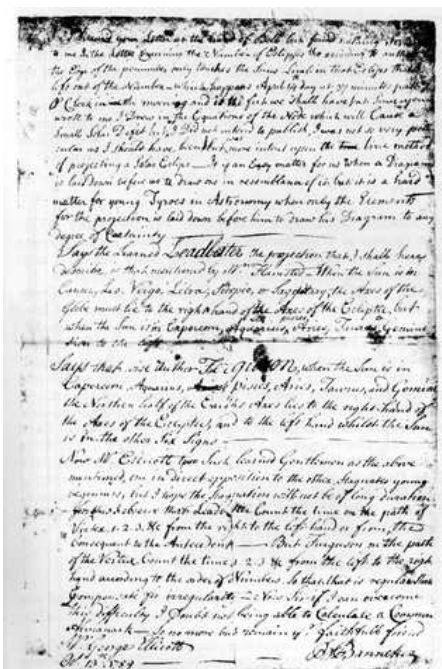 I Received your Letter at the hand of Bell but found nothing
to me In the Letter Concerning the Number of Eclipses tho according to authors
the Edge of the penumbra only touches the Suns Limb in that Eclips that I
left out of the Number— which happens April 14th day at 37 minutes past 7
O'Clock in the morning and is the first we shall have but since you
wrote to me I drew in the Equations of the Node which will Cause a
Small Solar Defect but I Did not intend to publish I was not so very
cular as I should have been but was more intent upon the true method
of projecting a Solar Eclips— It is an Easy matter for us when a Diagram
is laid down before us to draw one in resemblance of it but it is a hard
matter for young Tyroes in Astronomy when only the Elements
for the projection is laid down before him to draw his Diagram to any
degree of Certainty
Says the Learned Leadbetter the projection that I shall here
describe is that mentioned by Mr. Flamsted— When the Sun is in
Cancer, Leo, Virgo, Libra, Scorpio, or Sagitary, the Axes of the
Globe must lie to the right hand of the Axes of the Ecliptic, but
when the Sun is in Capercorn, Aquarius, Pisces, Aries, Taurus, Gemini
to the left
Says that wise Author Ferguson, when the Sun is in
Capercorn, Aquarius, Pisces, Aries, Taurus, and Gemini
the Northern half of the Earths Axes lies to the right hand of
the Axes of the Ecliptic, and to the left hand whilst the Sun
is in the other Six Signs—
Now Mr. Ellicott two Such learned Gentlemen as the above
mentioned, one in direct opposition to the other, Stagnates young
beginners, but I hope the Stagnation will not be of long duration
for this I observe that Leadbetter Count the time on the path of
Vertex 1. 2. 3. &c from the right to the left hand or from the
Consequent to the Antecedent— But Ferguson on the path
of the Vertex Count the time 1. 2. 3 &c from the left to the right
hand according to the order of Numbers, So that that is regular Shall
Compensate for irregularity— Now Sir if I can overcome
this difficulty I Doubt not being able to Calculate a Common
Almanack— So no more but remain yr. faithfull friend
Mr. George Ellicott
B. Banneker
Oct. 13th 1789